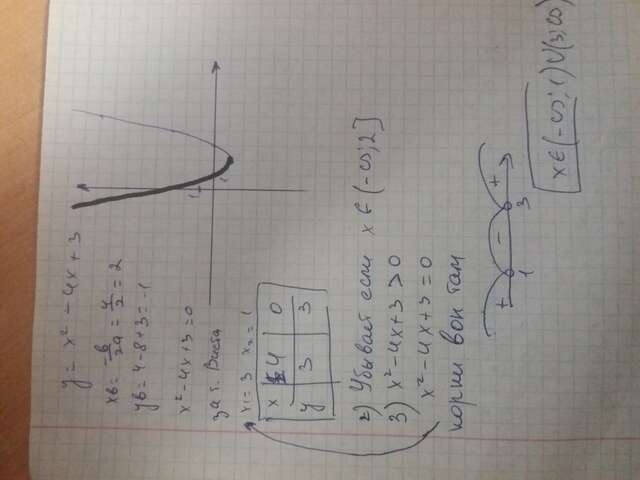 y = x² - 4x + 3
xв = -b/2a = 4/2 = 2
yв = 4 - 8 + 3 = -1
x² - 4x + 3 = 0
за т. Виета
x₁ = 3 x₂ = 1
x 4 0
y 3 3
2) Убывает если x ∈ (-∞; 2]
3) x² - 4x + 3 > 0
x² - 4x + 3 = 0
корни вон там
+ - +
1 3
x ∈ (-∞; 1) ∪ (3; ∞)
1
1